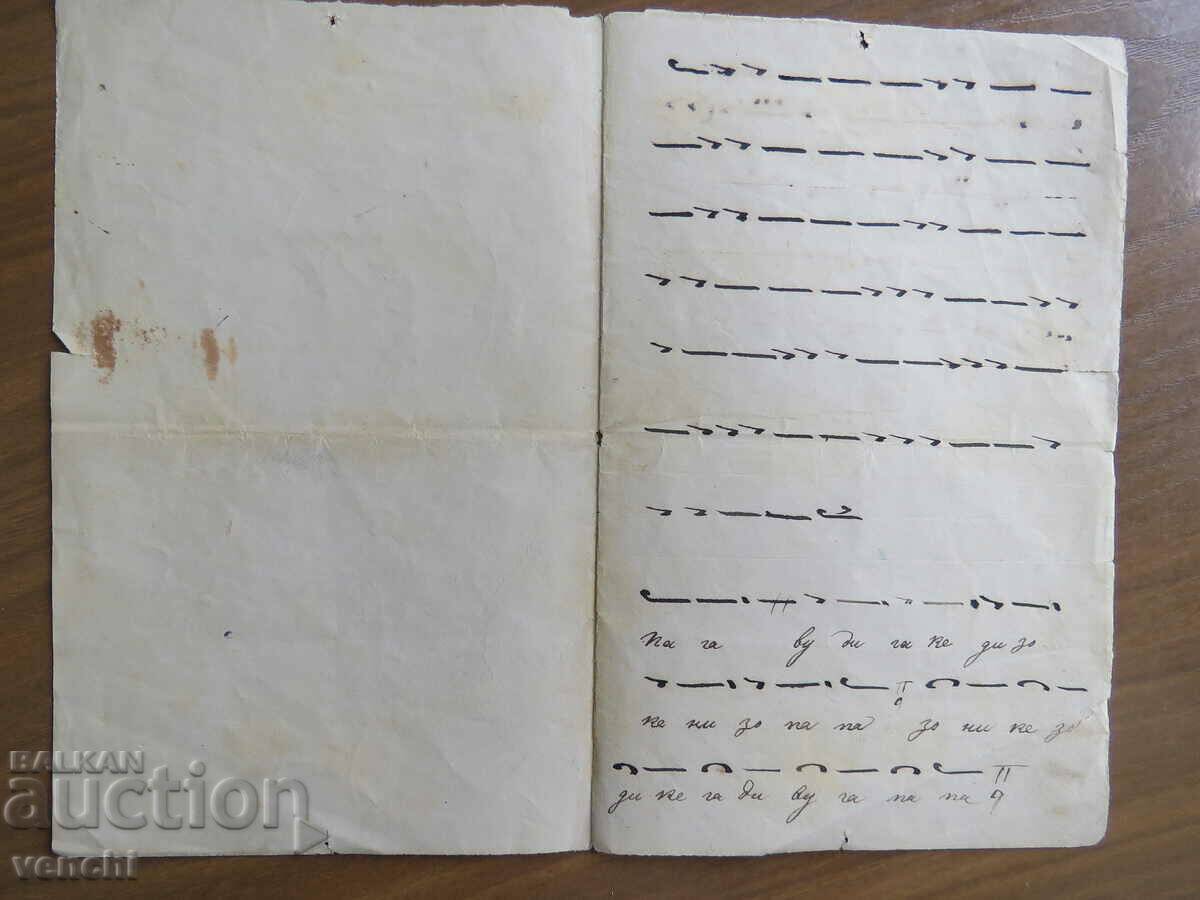 па га ву ди га ке ди зо
ке ни зо па па зо ни ке зо
ди ке га ди ву га па па
BALKAN
auction
venchi